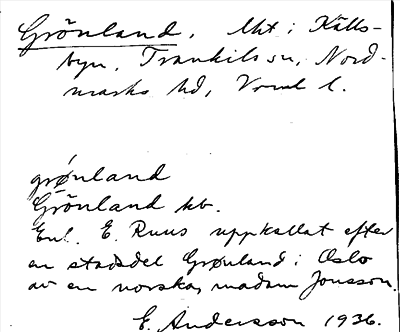 Grönland. Lht i Källs-
byn, Trankils sn, Nord-
marks hd, Vrml l.
grønland
Grönland kb.
Enl. E. Ruus uppkallat efter
en stadsdel Grønland i Oslo
av en norska, madam Jonsson.
E. Andersson 1936.